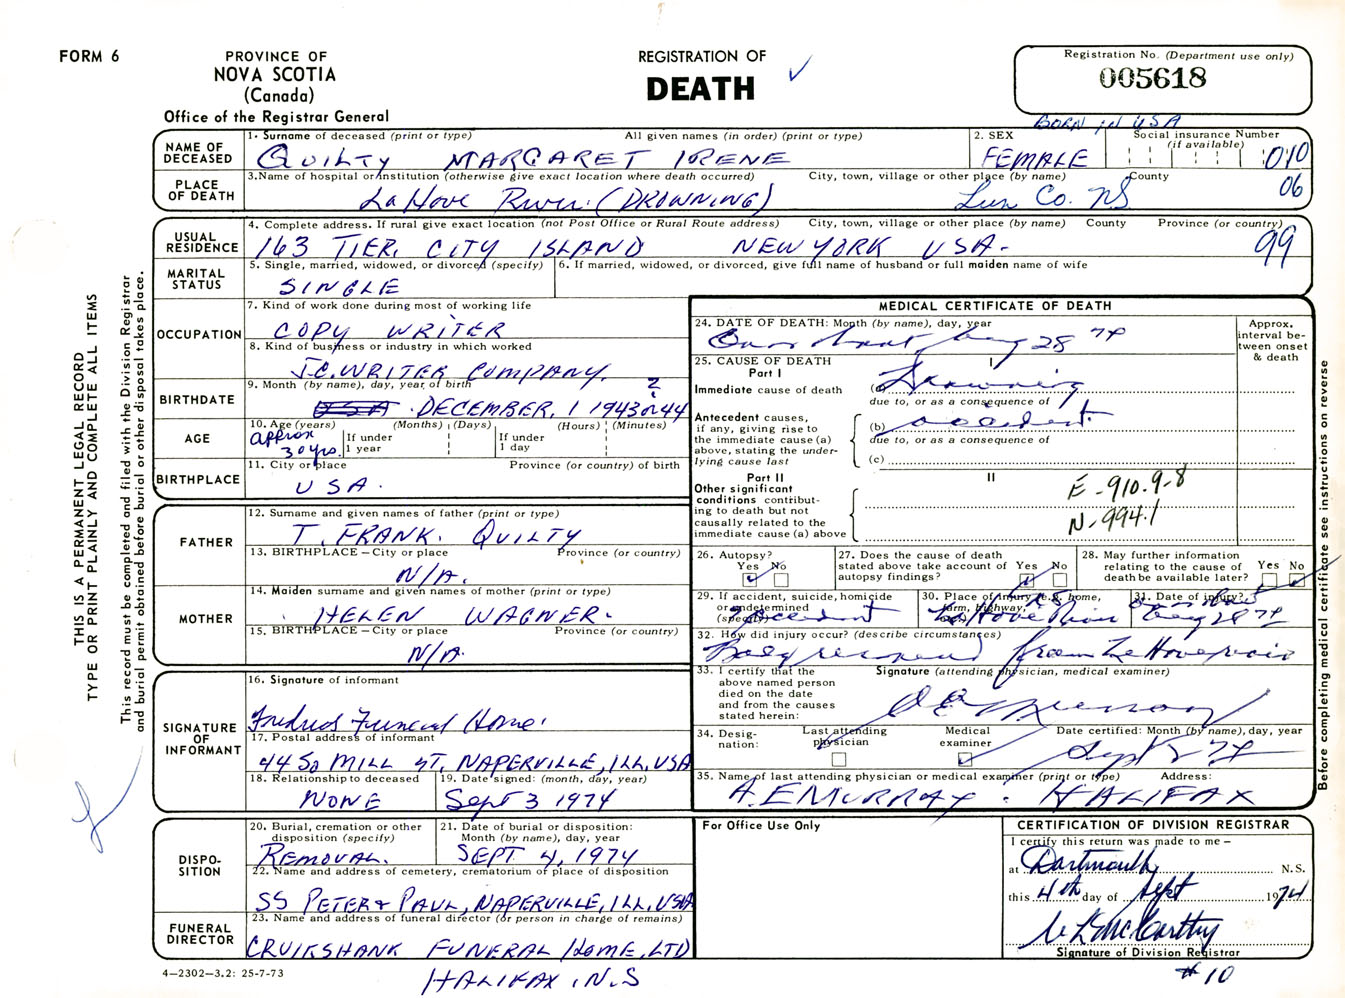 FORM 6
PROVINCE OF
NOVA SCOTIA
(Canada)
Office of the Registrar General
REGISTRATION OF
DEATH
Registration No. (Department use only)
005618
BORN IN USA
NAME OF DECEASED
1. Surname of deceased (print or type) All given names (in order) (print or type)
QUILTY MARGARET IRENE
2. SEX
FEMALE
Social insurance Number
(if available)
010
PLACE OF DEATH
3.Name of hospital or institution (otherwise give exact location where death occurred) City, town, village or other place (by name) County
LaHave River (DROWNING) Lun Co. NS 06
USUAL RESIDENCE
4. Complete address. If rural give exact location (not Post Office or Rural Route address) City, town, village or other place (by name) County Province (or country)
163 TIER, CITY ISLAND NEW YORK USA. 99
MARITAL STATUS
5. Single, married, widowed, or divorced (specify)
SINGLE
6. If married, widowed, or divorced, give full name of husband or full maiden name of wife
OCCUPATION
7. Kind of work done during most of working life
COPY WRITER
8. Kind of business or industry in which worked
J.C. WRITER COMPANY.
BIRTHDATE
9. Month (by name), day, year of birth
USA DECEMBER, 1 1943 or 44 ?
AGE
10. Age (years) (Months) (Days) (Hours) (Minutes)
approx 30 yrs.
If under 1 year
If under 1 day
BIRTHPLACE
11. City or place Province (or country) of birth
USA.
FATHER
12. Surname and given names of father (print or type)
T. FRANK. QUILTY
13. BIRTHPLACE – City or place Province (or country)
N/A.
MOTHER
14. Maiden surname and given names of mother (print or type)
HELEN WAGNER.
15. BIRTHPLACE – City or place Province (or country)
N/A.
SIGNATURE OF INFORMANT
16. Signature of informant
Funeral Home.
17. Postal address of informant
44 So MILL ST, NAPERVILLE, ILL, USA
18. Relationship to deceased
NONE
19. Date signed: (month, day, year)
Sept 3 1974
DISPOSITION
20. Burial, cremation or other disposition (specify)
REMOVAL.
21. Date of burial or disposition: Month (by name), day, year
SEPT 4, 1974
22. Name and address of cemetery, crematorium of place of disposition
SS PETER & PAUL, NAPERVILLE, ILL. USA
FUNERAL DIRECTOR
23. Name and address of funeral director (or person in charge of remains)
CRUIKSHANK FUNERAL HOME, LTD
HALIFAX, N.S
4—2302—3.2: 25-7-73
MEDICAL CERTIFICATE OF DEATH
24. DATE OF DEATH: Month (by name), day, year
On or about Aug 28 74
Approx. interval between onset & death
25. CAUSE OF DEATH
Part I
I
Immediate cause of death
(a) Drowning
due to, or as a consequence of
Antecedent causes, if any, giving rise to the immediate cause (a) above, stating the underlying cause last
(b) accident.
due to, or as a consequence of
(c)
Part II
II
Other significant conditions contributing to death but not causally related to the immediate cause (a) above
E-910.9-8
N-994.1
26. Autopsy?
Yes No
27. Does the cause of death stated above take account of autopsy findings? Yes No
28. May further information relating to the cause of death be available later? Yes No
29. If accident, suicide, homicide or undetermined (specify)
accident
30. Place of injury (e.g. home, farm, highway,
LaHave River
31. Date of injury?
on or about Aug 28 74
32. How did injury occur? (describe circumstances)
Body recovered from LaHave river
33. I certify that the above named person died on the date and from the causes stated herein:
Signature (attending physician, medical examiner)
34. Designation:
Last attending physician
Medical examiner
Date certified: Month (by name), day, year
Sept 74
35. Name of last attending physician or medical examiner (print or type) Address:
A.E MURRAY. HALIFAX
For Office Use Only
CERTIFICATION OF DIVISION REGISTRAR
I certify this return was made to me –
at Dartmouth N.S.
this 4th day of Sept 1974
McCarthy
Signature of Division Registrar
#10
THIS IS A PERMANENT LEGAL RECORD
TYPE OR PRINT PLAINLY AND COMPLETE ALL ITEMS
This record must be completed and filed with the Division Registrar
and burial permit obtained before burial or other disposal takes place.
Before completing medical certificate see instructions on reverse